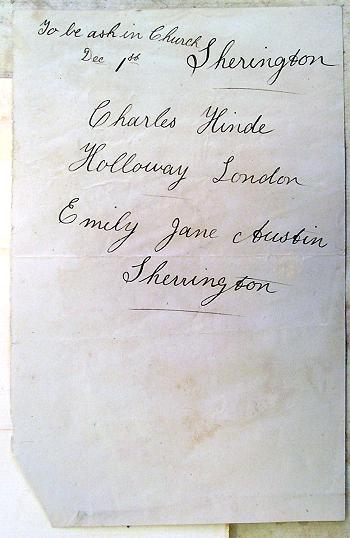 To be ask in Church
Dec 1st
Sherington
Charles Hinde
Holloway London
Emily Jane Austin
Sherrington